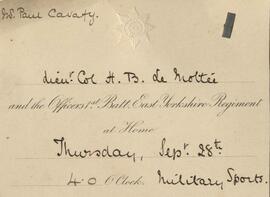 Mr. Paul Cavafy.
Lieut. Col. H. B. Le Mottée
and the Officers 1st Batt. East Yorkshire Regiment
at Home
Thursday, Sept. 28th
4.0 O'Clock. Military Sports.